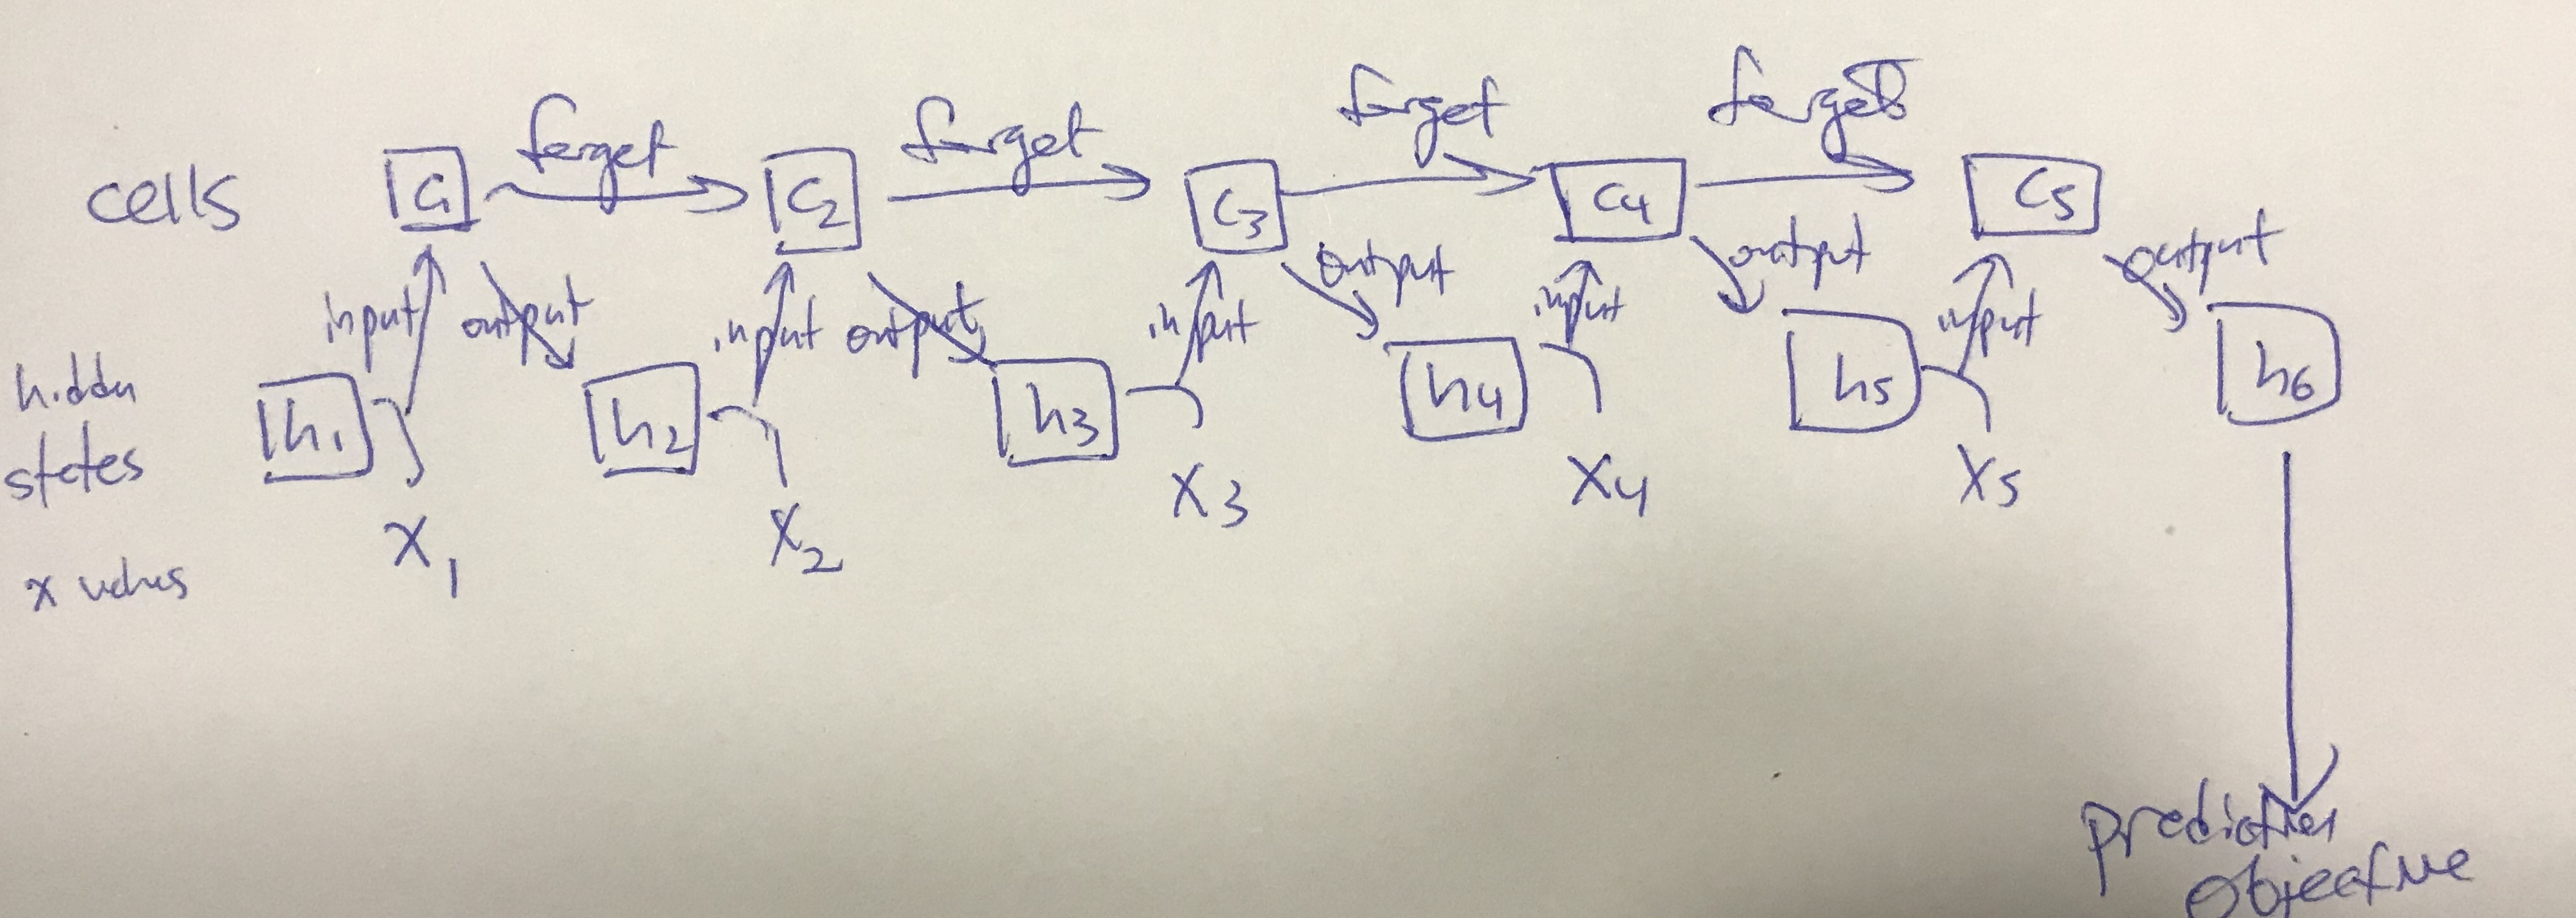 forget forget forget forget
cells C1 C2 C3 C4 C5
input output input output input output input output input output
hidden states h1 h2 h3 h4 h5 h6
x values X1 X2 X3 X4 X5
prediction
objective